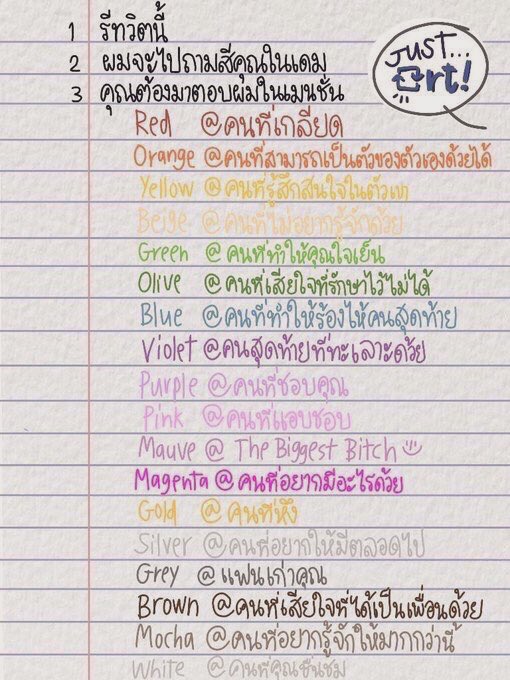 1 รีทวิตนี้
2 ผมจะไปถามสีคุณในเดม
3 คุณต้องมาตอบผมในเมนชั่น
JUST...
art!
Red @คนที่เกลียด
Orange @คนที่สามารถเป็นตัวของตัวเองด้วยได้
Yellow @คนที่รู้สึกสนใจในตัวเขา
Beige @คนที่ไม่อยากรู้จักด้วย
Green @คนที่ทำให้คุณใจเย็น
Olive @คนที่เสียใจที่รักษาไว้ไม่ได้
Blue @คนที่ทำให้ร้องไห้คนสุดท้าย
Violet @คนสุดท้ายที่ทะเลาะด้วย
Purple @คนที่ชอบคุณ
Pink @คนที่แอบชอบ
Mauve @ The Biggest Bitch
Magenta @คนที่อยากมีอะไรด้วย
Gold @คนที่หึง
Silver @คนที่อยากให้มีตลอดไป
Grey @แฟนเก่าคุณ
Brown @คนที่เสียใจที่ได้เป็นเพื่อนด้วย
Mocha @คนที่อยากรู้จักให้มากกว่านี้
White @คนที่คุณชื่นชม